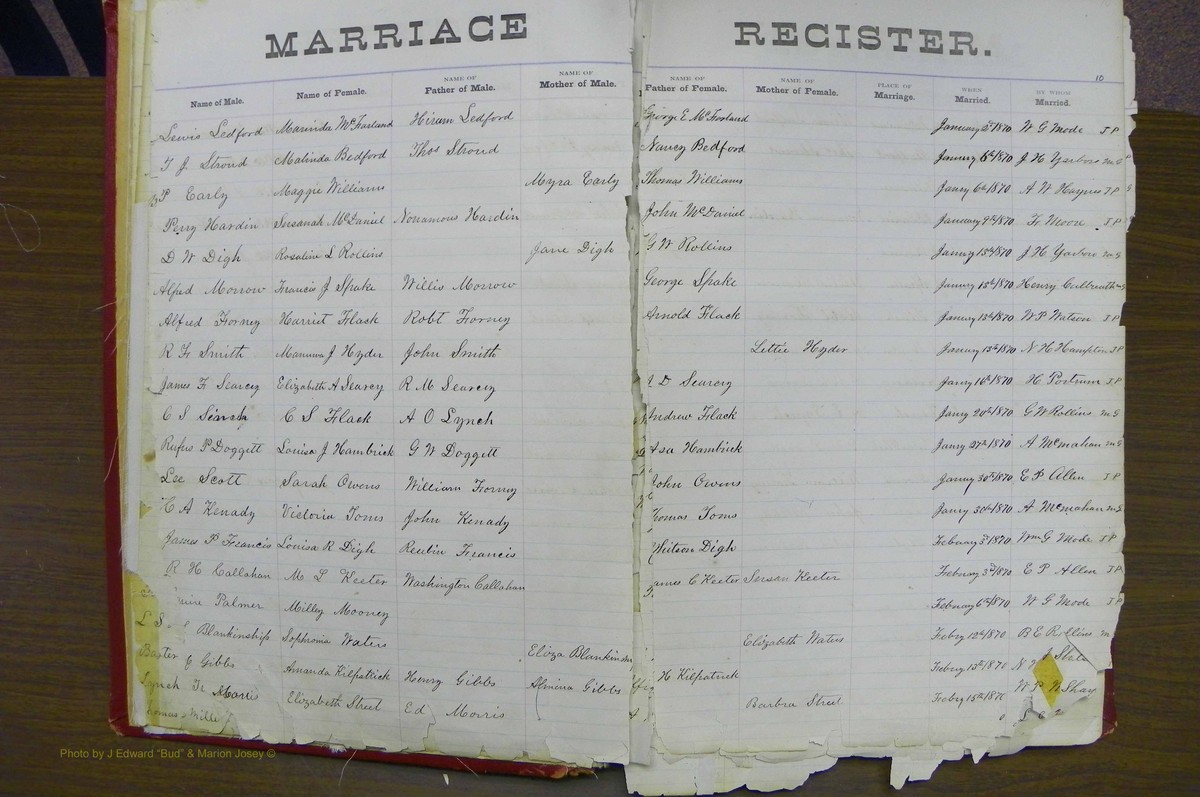 MARRIAGE REGISTER.
10
Name of Male. Name of Female. NAME OF Father of Male. NAME OF Mother of Male. NAME OF Father of Female. NAME OF Mother of Female. PLACE OF Marriage. WHEN Married. BY WHOM Married.
Lewis Ledford Marinda McFarland Hiram Ledford George E McFarland January 2nd 1870 W G Mode J P
T J Stroud Malinda Bedford Thos Stroud Nancy Bedford January 6th 1870 J H Yarboro M G
P Early Maggie Williams Myra Early Thomas Williams Janry 6th 1870 A W Haynes J P
Perry Hardin Susanah McDaniel Nonamous Hardin John McDaniel January 9th 1870 F Moore J P
D W Digh Rosaline L Rollins Jane Digh G W Rollins Janury 13th 1870 J H Yarboro M G
Alfred Morrow Francis J Spake Willis Morrow George Spake January 13th 1870 Henry Culbreath
Alfred Forney Harriet Flack Robt Forney Arnold Flack January 13th 1870 W P Watson J P
R F Smith J Hyder John Smith Lettie Hyder January 13th 1870 N H Hampton J P
James F Searcy Elizabeth A Searcy R M Searcy D Searcy Janry 16th 1870 H Portrum J P
C S C S Flack A O Lynch Andrew Flack Janry 20th 1870 G W Rollins M G
Rufus P Doggett Louisa J Hambrick G W Doggett Asa Hambrick Janry 27th 1870 A McMahan M G
Lee Scott Sarah Owens William Forney John Owens Janry 30th 1870 E P Allen J P
C A Kenady Victoria Toms John Kenady Thomas Toms Janry 30th 1870 A McMahan M G
James P Francis Louisa R Digh Reubin Francis Whitson Digh Febuary 3rd 1870 Wm G Mode J P
R H Callahan M L Keeter Washington Callahan James C Keeter Susan Keeter Febuary 3rd 1870 E P Allen J P
Palmer Milley Mooney Febuary 6th 1870 W G Mode J P
L S Blankinship Sophronia Waters Eliza Blankinship Elizabeth Waters Febry 12th 1870 B E Rollins
Baxter C Gibbs Amanda Kilpatrick Henry Gibbs Almira Gibbs H Kilpatrick Febry 13th 1870
Lynch Morris Elizabeth Street Ed Morris Barbra Street Febry 15th 1870 W P W Shay
Thomas
Photo by J Edward "Bud" & Marion Josey ©